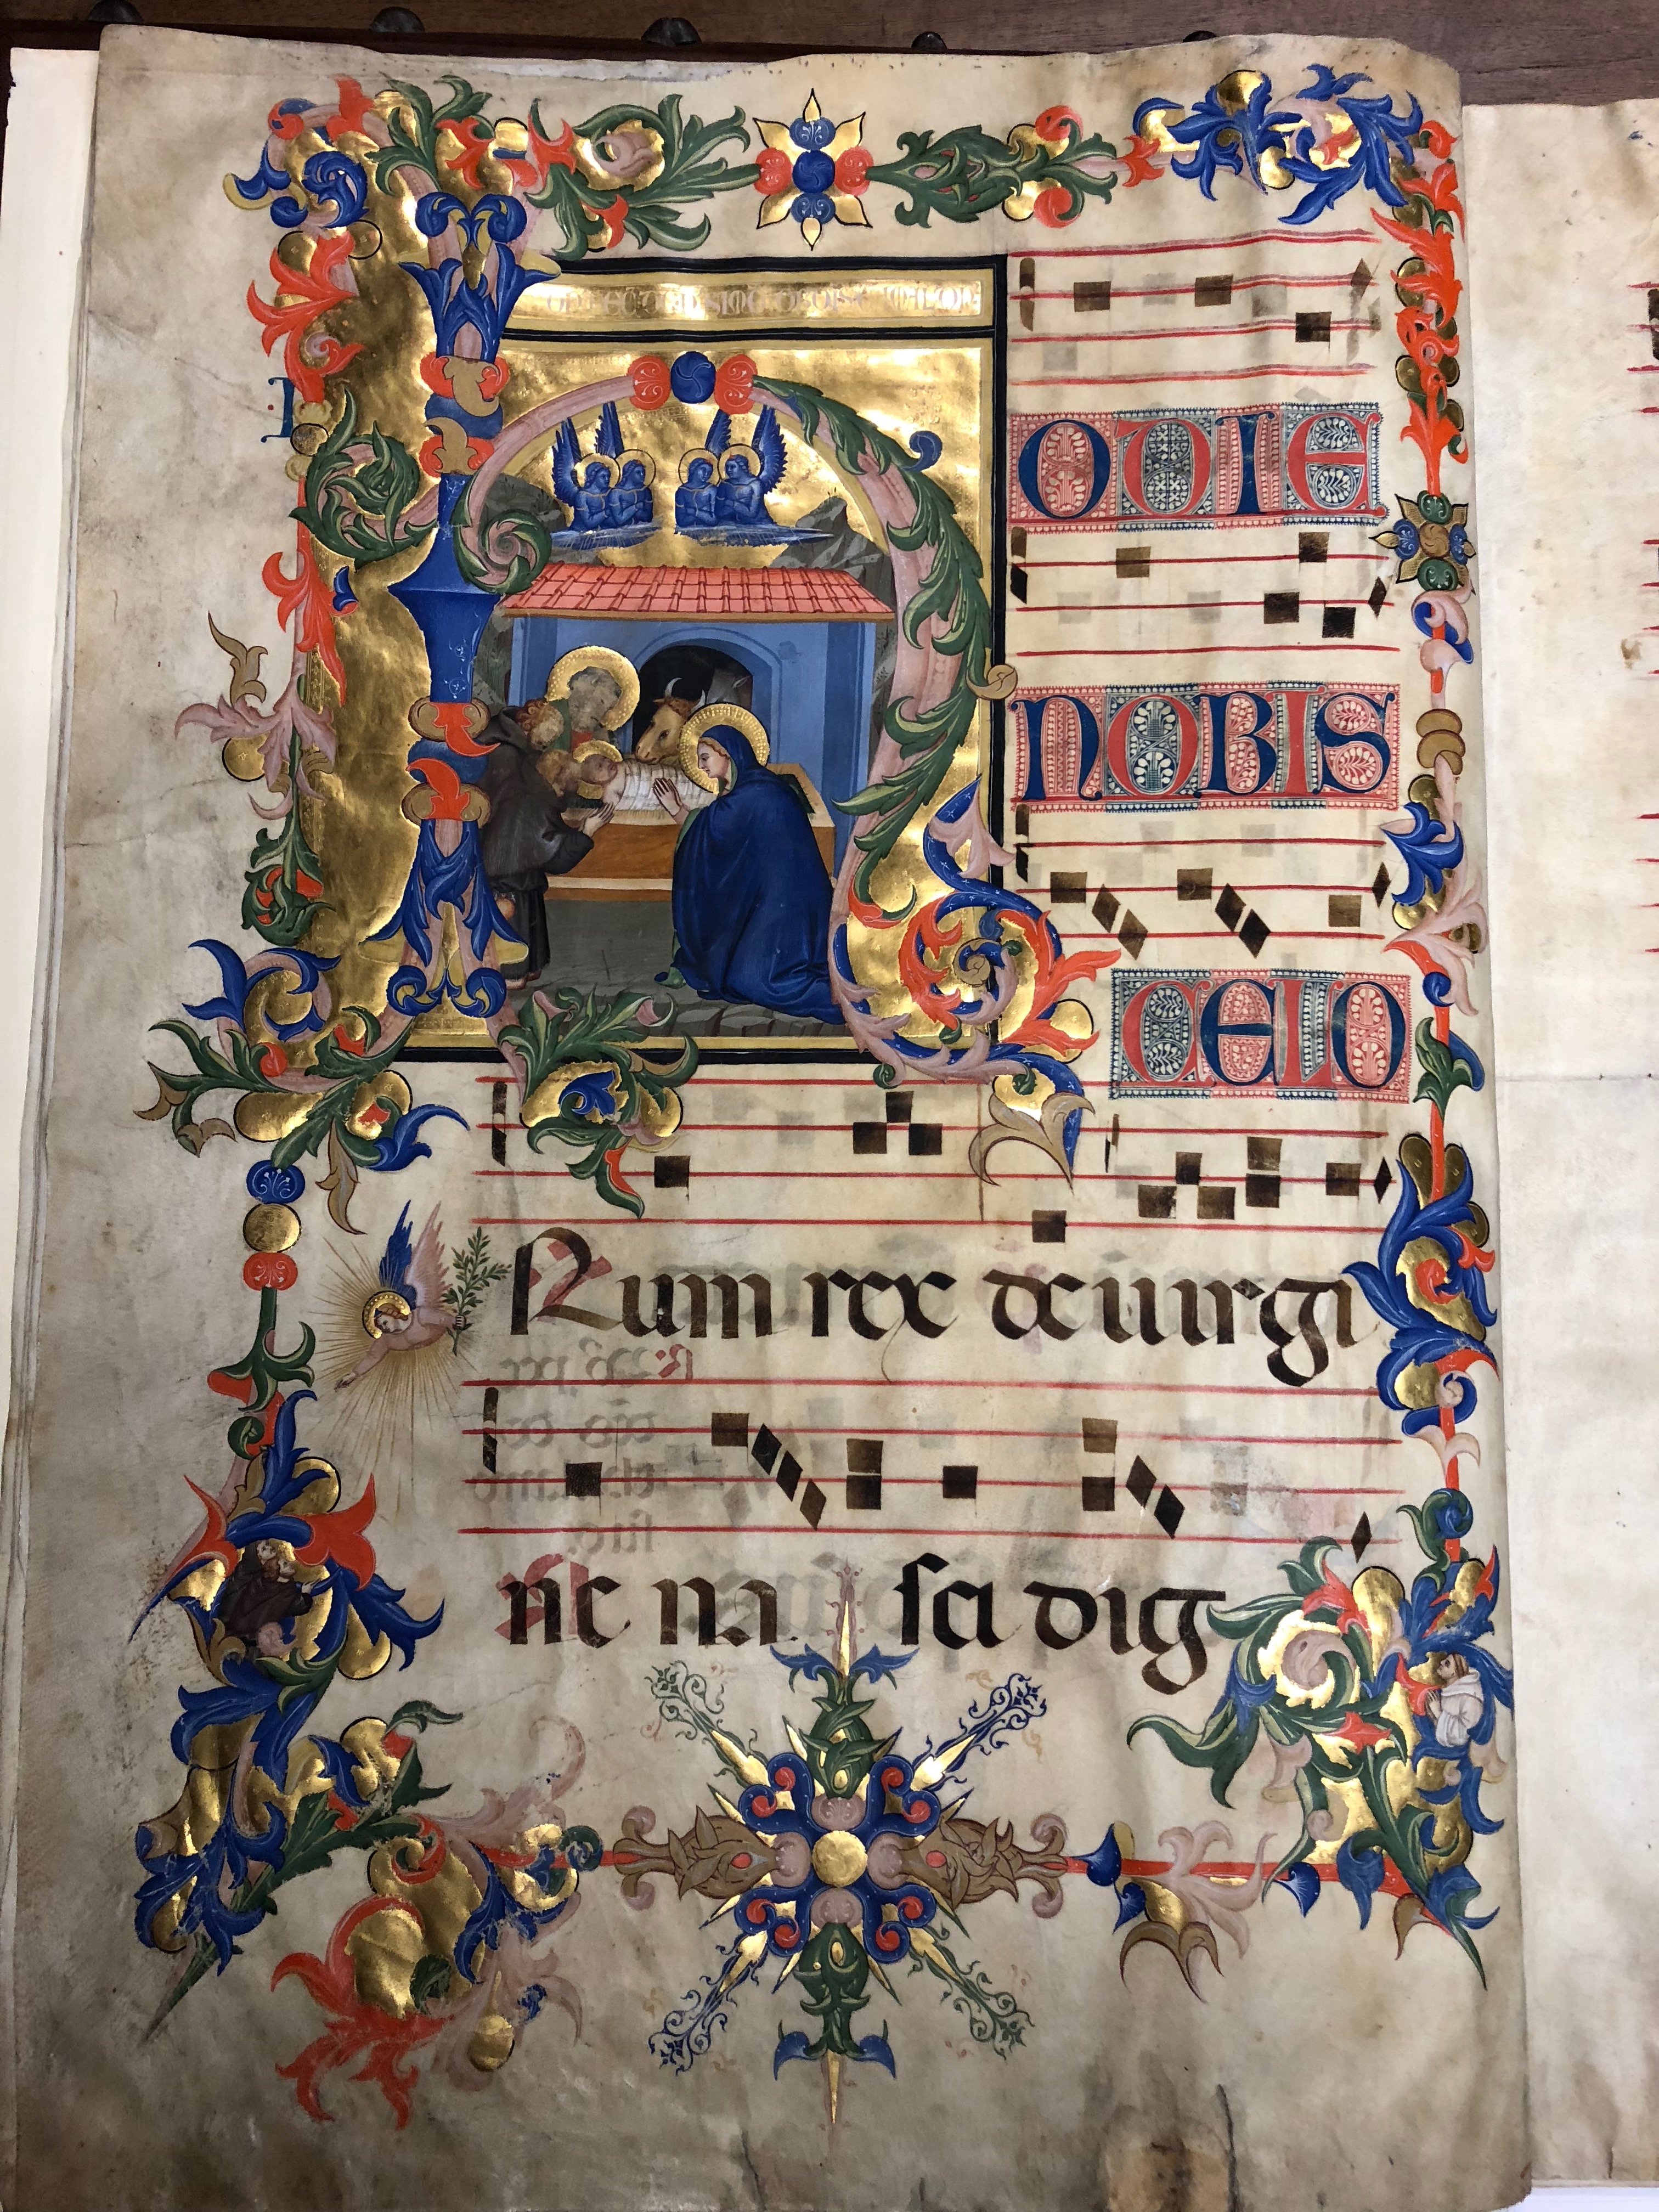 H
ODIE
NOBIS
CELO
Rum rex de uirgi
ne na sci dig